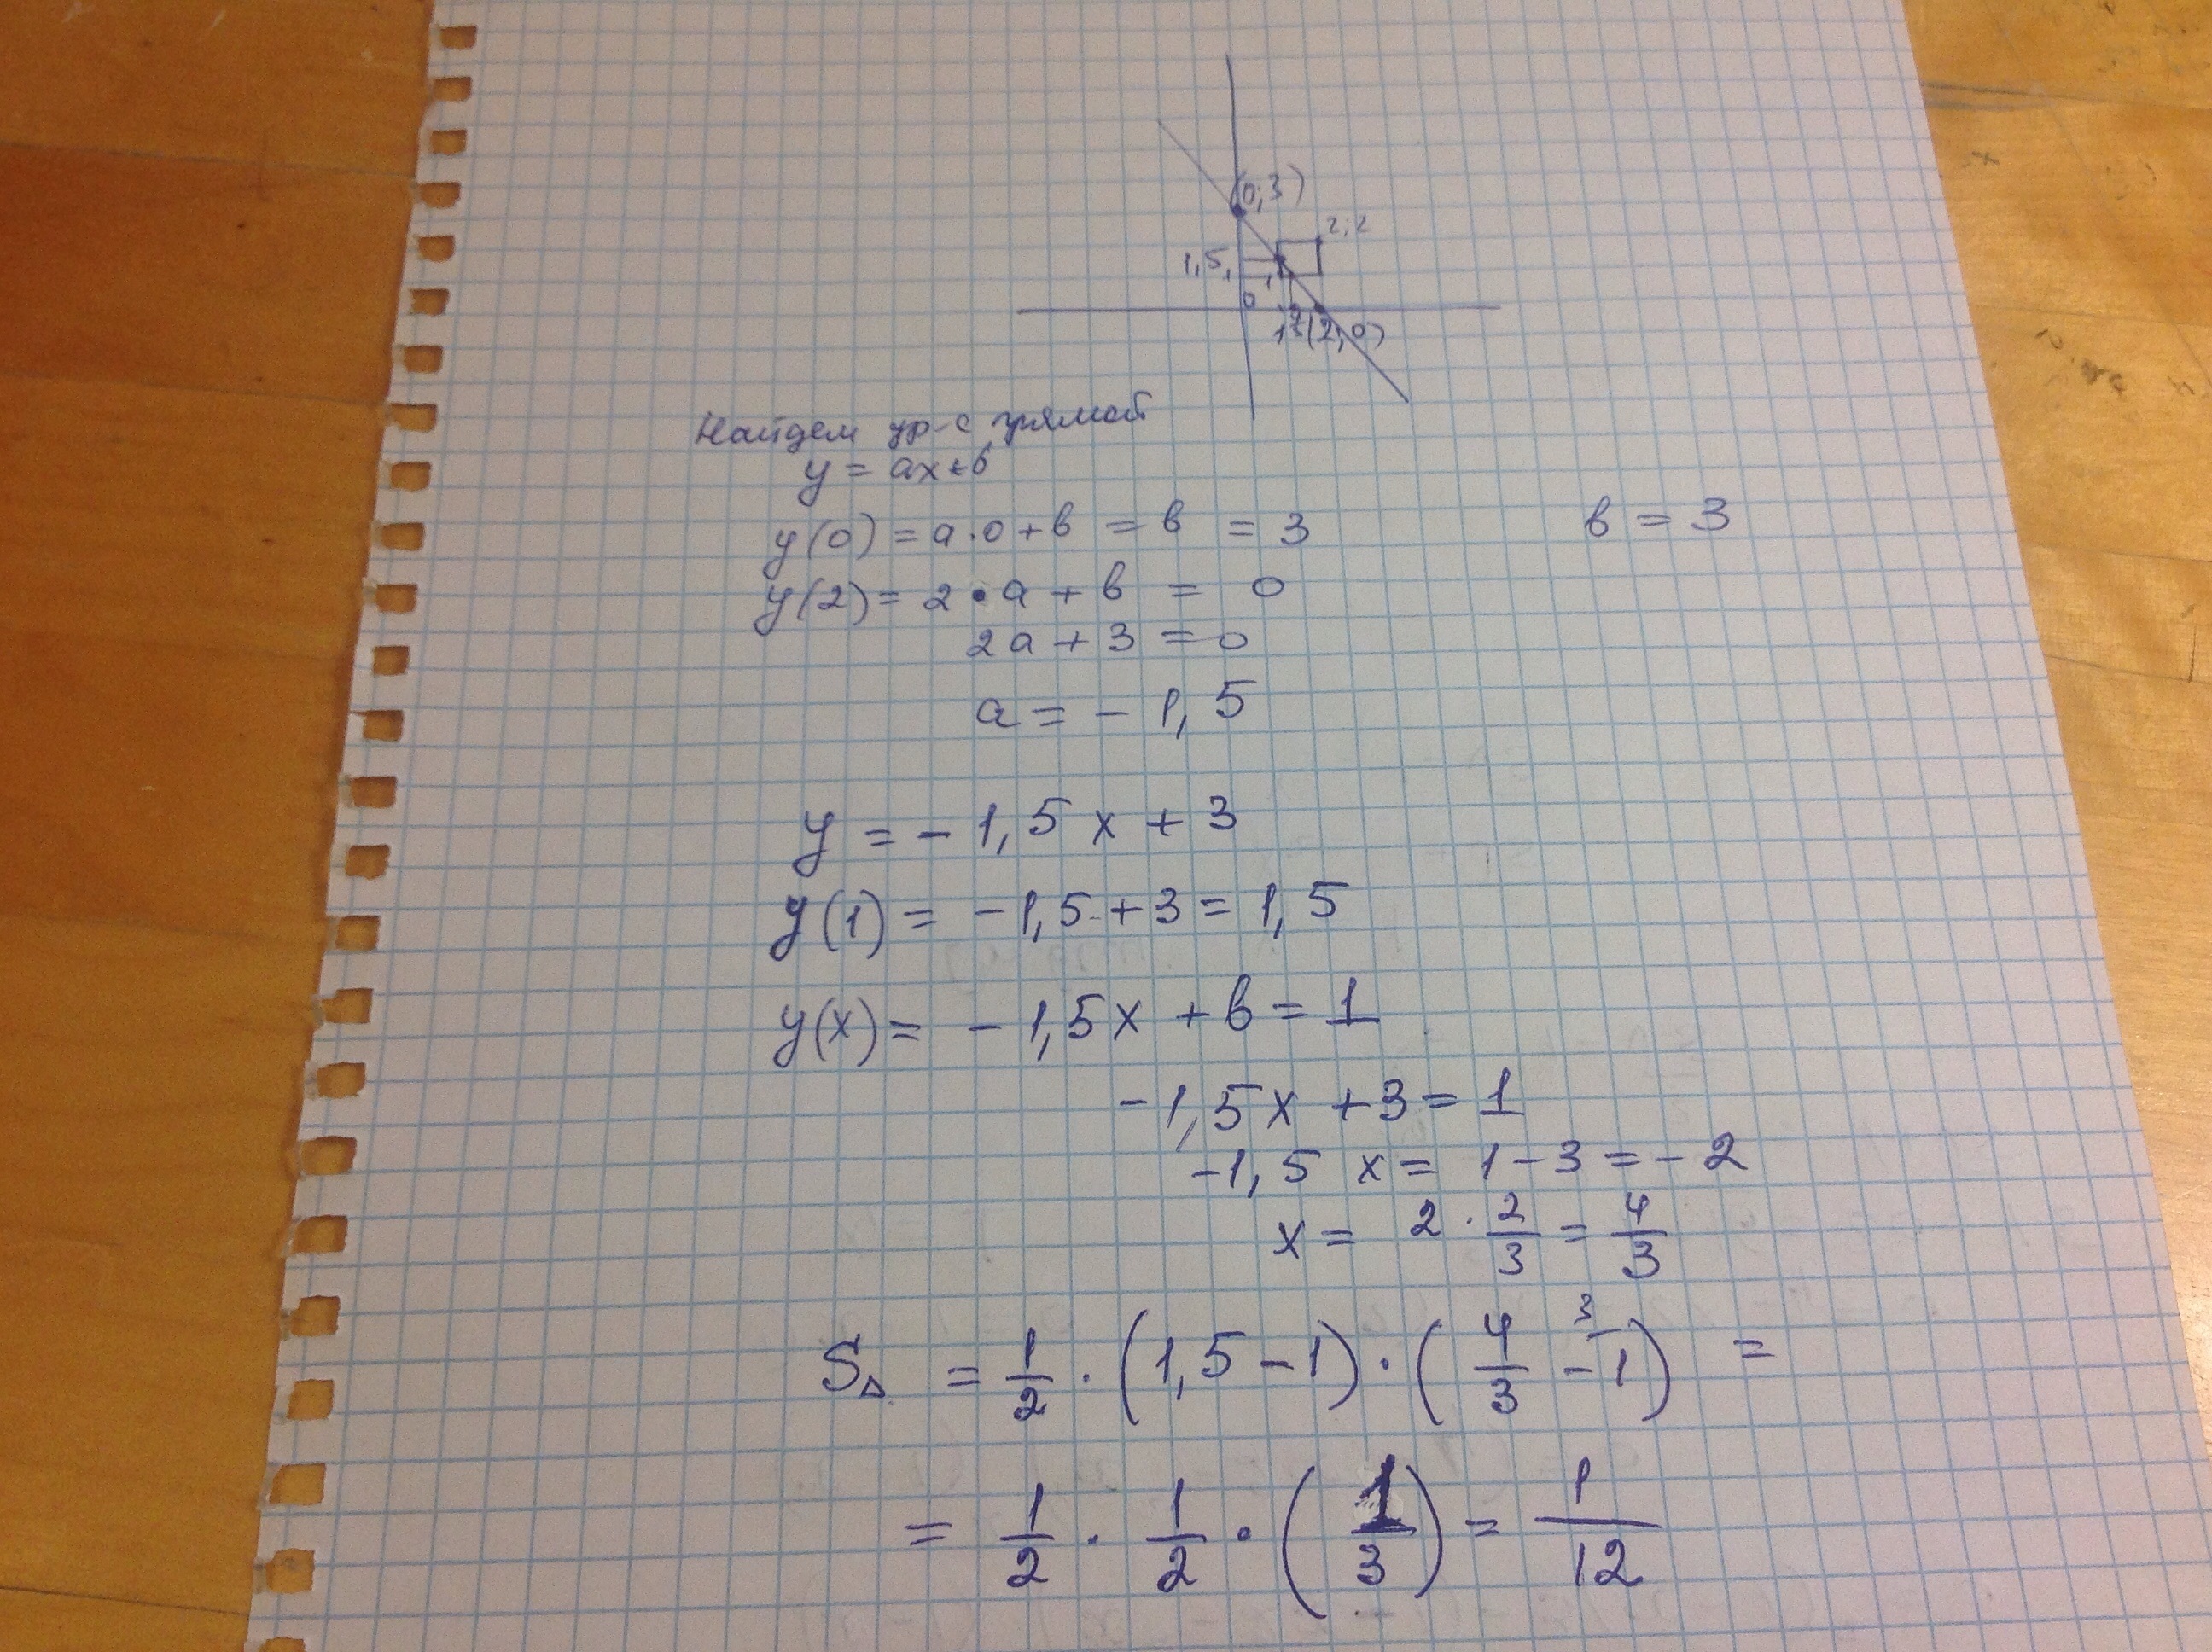 (0;3)
2;2
1,5
1
0
1 (2;0)
Найдем ур-е прямой
y = ax+b
y(0) = a·0+b = b = 3 b = 3
y(2) = 2·a + b = 0
2a + 3 = 0
a = - 1,5
y = - 1,5 x + 3
y(1) = -1,5+3 = 1,5
y(x) = - 1,5x + b = 1
-1,5x +3 = 1
-1,5 x = 1-3 = -2
x = 2 · 2/3 = 4/3
S△ = 1/2 · (1,5-1) · (4/3 - 1 3) =
= 1/2 · 1/2 · (1/3) = 1/12